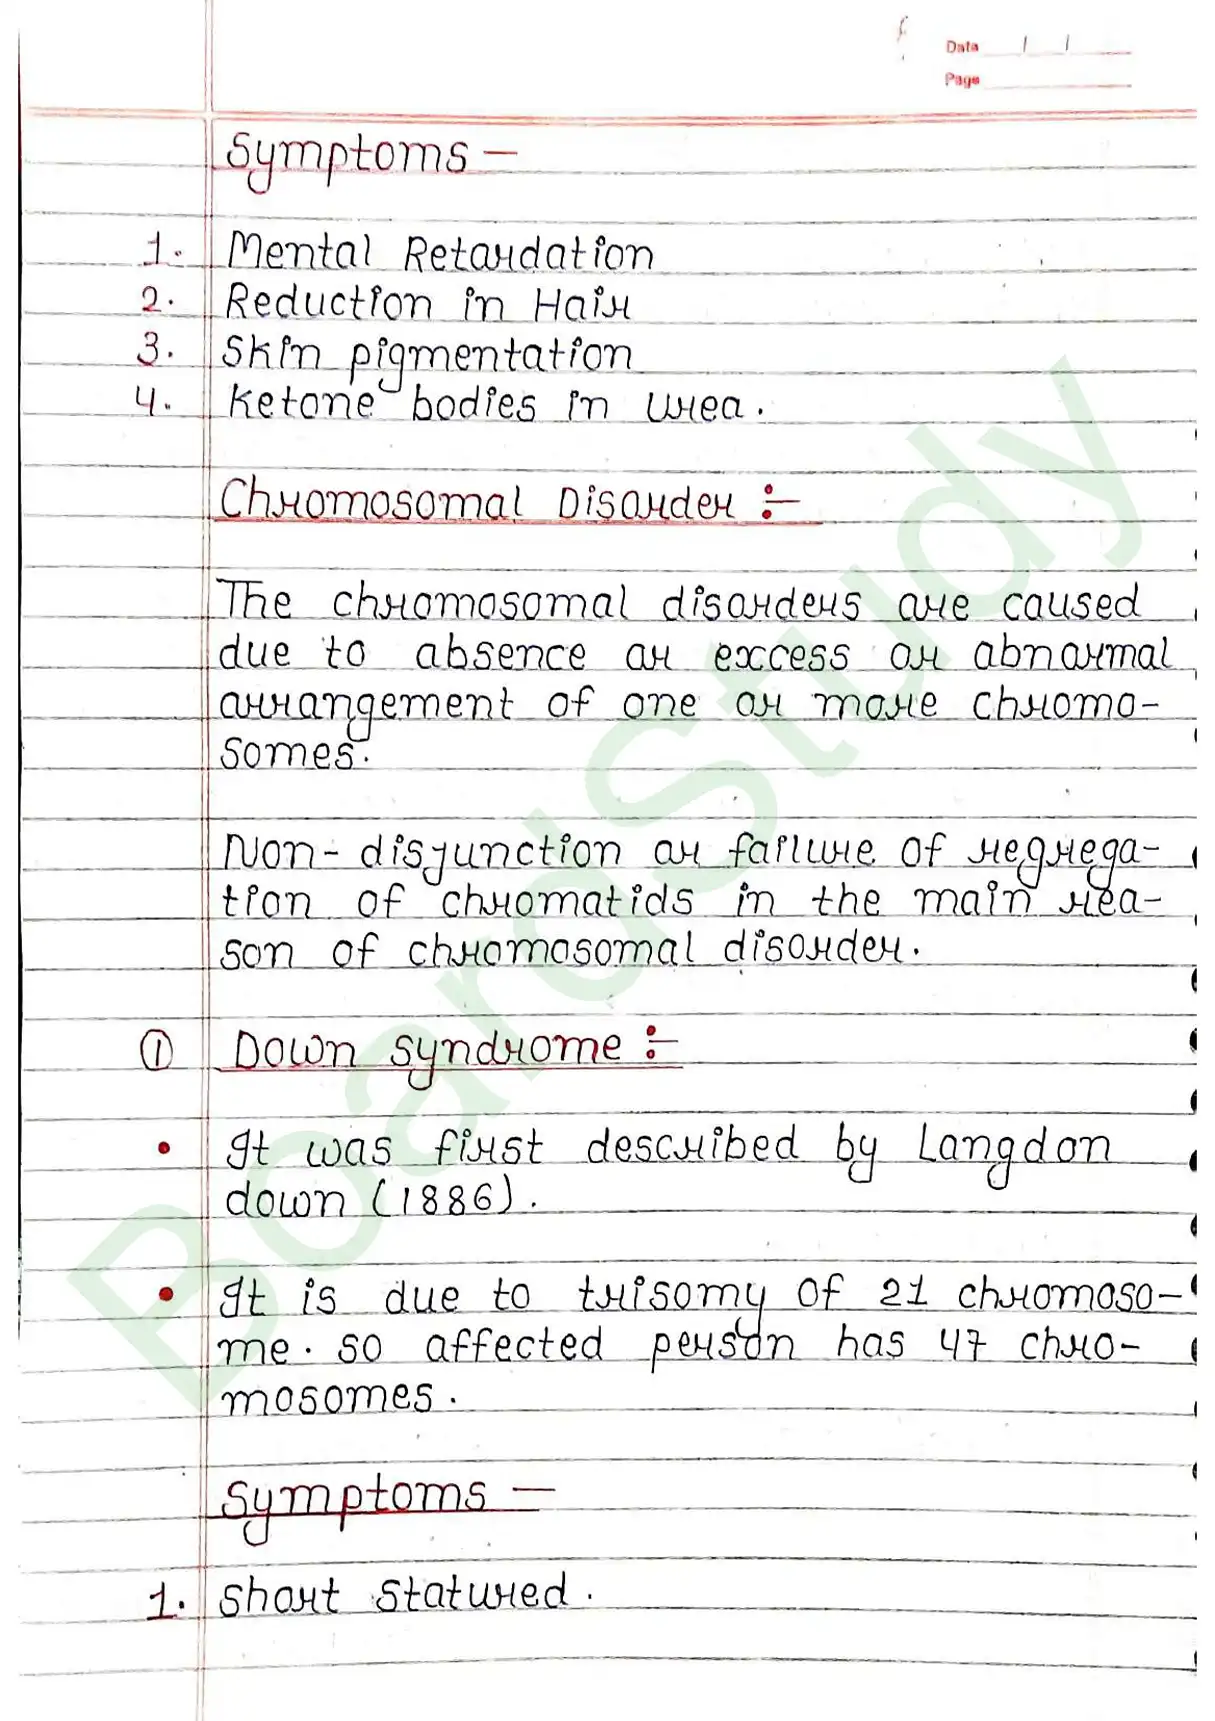 Data / /
Page
Symptoms –
1. Mental Retardation
2. Reduction in Hair
3. Skin pigmentation
4. Ketone bodies in urea.
Chromosomal Disorder :-
The chromosomal disorders are caused
due to absence or excess or abnormal
arrangement of one or more chromo-
somes.
Non-disjunction or failure of regrega-
tion of chromatids in the main rea-
son of chromosomal disorder.
① Down syndrome :-
• It was first described by Langdon
down (1886).
• It is due to trisomy of 21 chromoso-
me. so affected person has 47 chro-
mosomes.
Symptoms –
1. Short statured.
BoardStudy